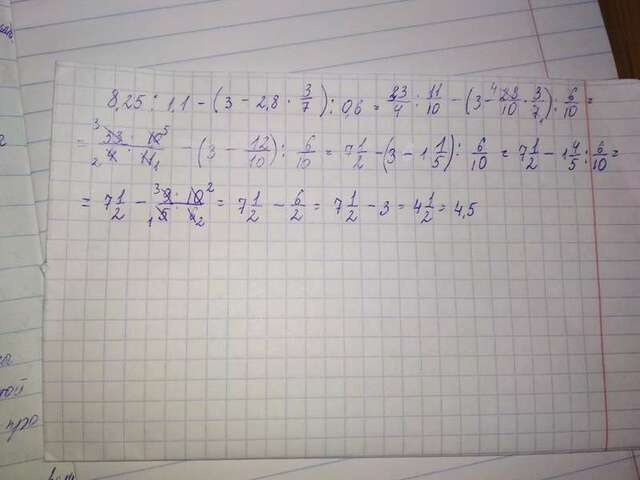 8,25 : 1,1 - (3 - 2,8 · 3/7) : 0,6 = 33/4 : 11/10 - (3 - 4 28/10 · 3/7 1) : 6/10 =
= 3 33 · 10 5 / 2 4 · 11 1 - (3 - 12/10) : 6/10 = 7 1/2 - (3 - 1 1/5) : 6/10 = 7 1/2 - 1 4/5 : 6/10 =
= 7 1/2 - 3 9 · 10 2 / 1 5 · 6 2 = 7 1/2 - 6/2 = 7 1/2 - 3 = 4 1/2 = 4,5
той